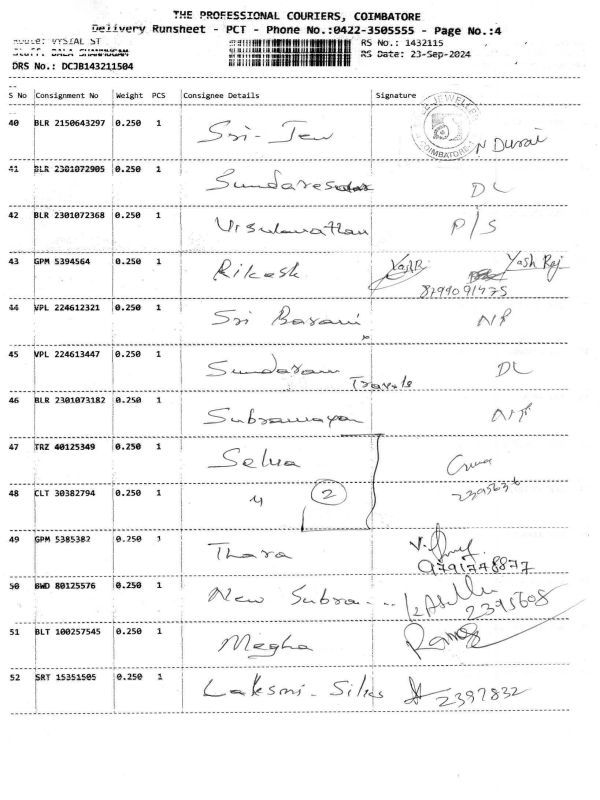 THE PROFESSIONAL COURIERS, COIMBATORE
Delivery Runsheet - PCT - Phone No.:0422-3505555 - Page No.:4
Route: VYSIAL ST
RS No.: 1432115
Staff: BALA SHANMUGAM
RS Date: 23-Sep-2024
DRS No.: DCJB143211504
S No Consignment No Weight PCS Consignee Details Signature
40 BLR 2150643297 0.250 1 Sri-Jew N Durai
COIMBATORE-1
41 BLR 2301072905 0.250 1 DL
42 BLR 2301072368 0.250 1 P/S
43 GPM 5394564 0.250 1 Rikesh Yash R Yash Raj
44 VPL 224612321 0.250 1 Sri Barani
45 VPL 224613447 0.250 1 Sundaram Travels DL
46 BLR 2301073182 0.250 1
47 TRZ 40125349 0.250 1 Selva
48 CLT 30382794 0.250 1 2
49 GPM 5385382 0.250 1 Thara
9791748877
50 BWD 80125576 0.250 1 New Subra-.. 2395608
51 BLT 100257545 0.250 1 Megha
52 SRT 15351505 0.250 1 Laksmi-Silks 2397832